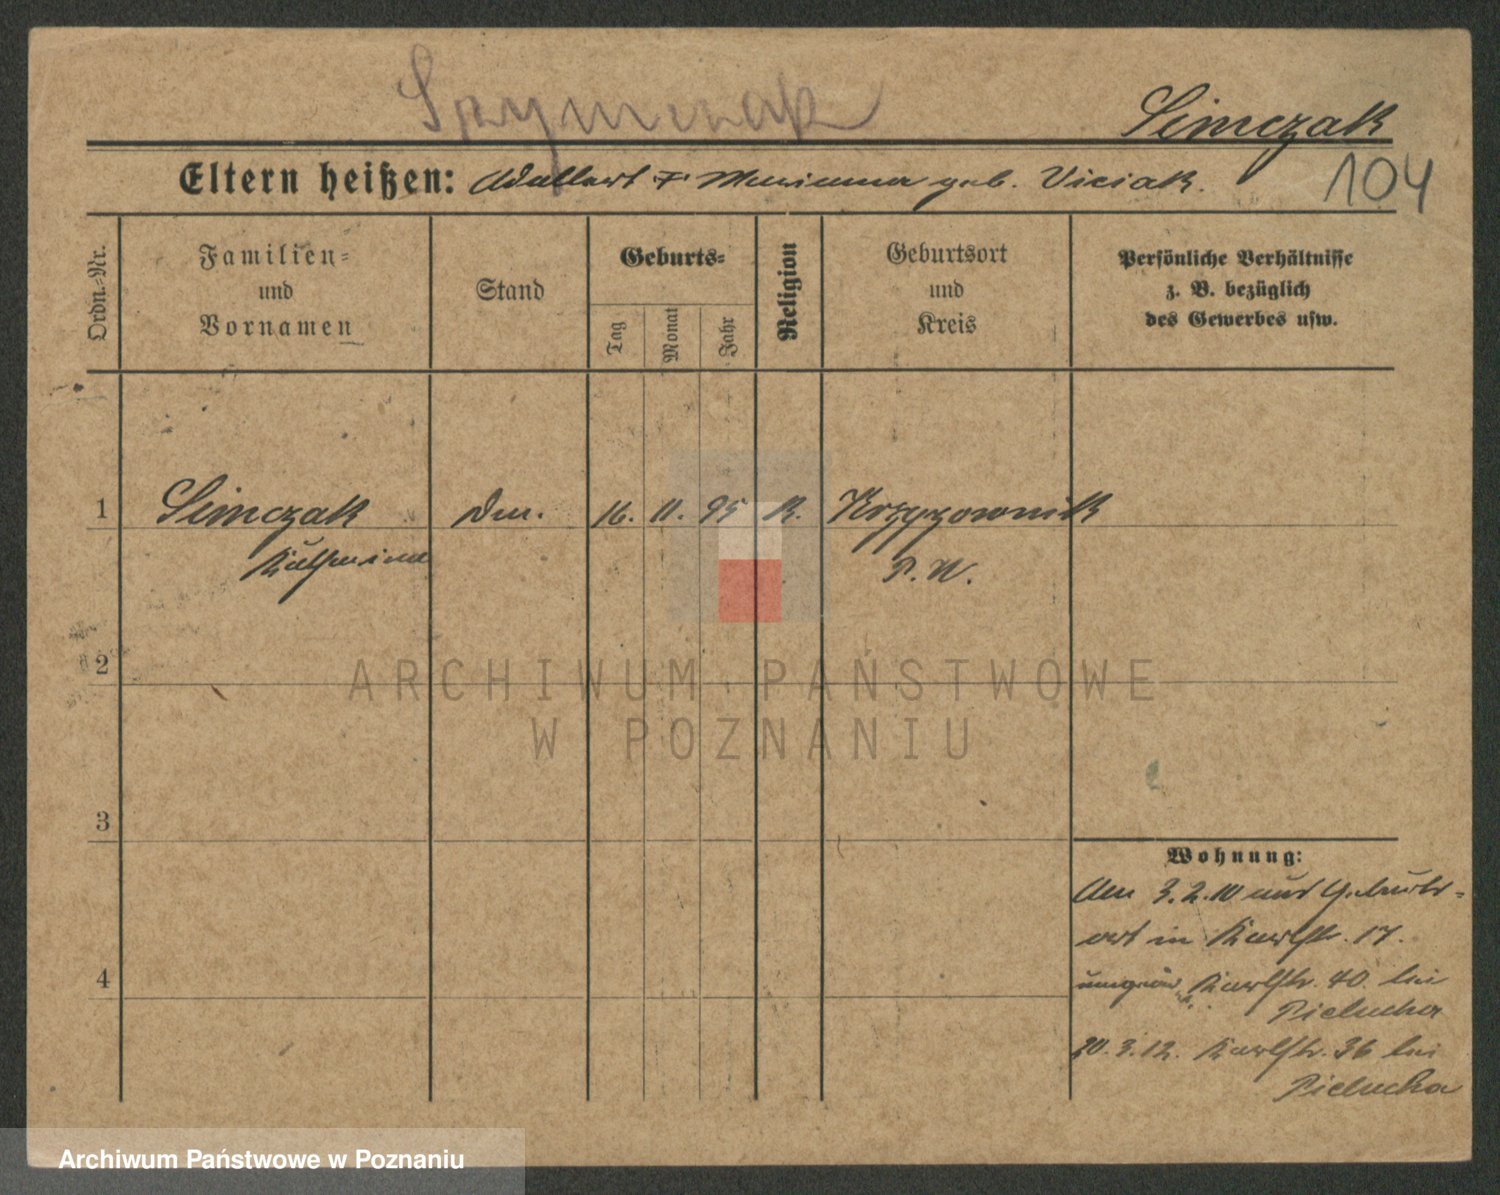 Szymczak
Simczak
104
Eltern heißen: Adalbert + Marianna geb. Viciak.
Ordn.-Nr.
Familien-
und
Vornamen
Stand
Geburts-
Tag
Monat
Jahr
Religion
Geburtsort
und
Kreis
Persönliche Verhältnisse
z. B. bezüglich
des Gewerbes usw.
1 Simczak 16. 11. 95 K. Krzyzownik
Katharina P. W.
2
3
4
Wohnung:
Am 3.2.10 aus Geburts-
ort in Karlstr. 17.
Karlstr. 40 bei
Pielucha
30.3.12. Karlstr. 36 bei
Pielucha
ARCHIWUM PAŃSTWOWE
W POZNANIU
Archiwum Państwowe w Poznaniu